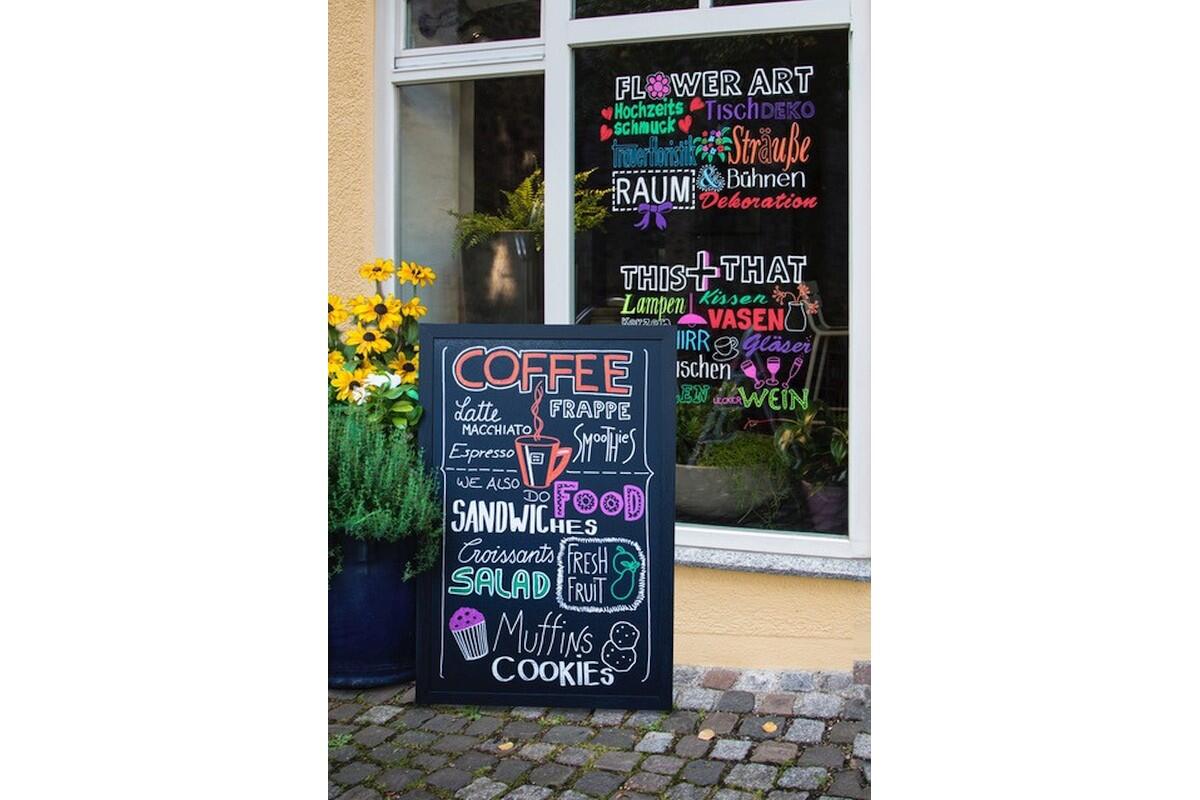 FLOWER ART
Hochzeits
schmuck
TischDEKO
Trauerfloristik
Sträuße
RAUM & Bühnen
Dekoration
THIS+THAT
Lampen
Kissen
Kerzen
VASEN
Gläser
LECKER WEIN
COFFEE
Latte
MACCHIATO
FRAPPE
Espresso
SMOOTHIES
WE ALSO
DO FOOD
SANDWICHES
Croissants
SALAD
FRESH
FRUIT
Muffins
COOKIES